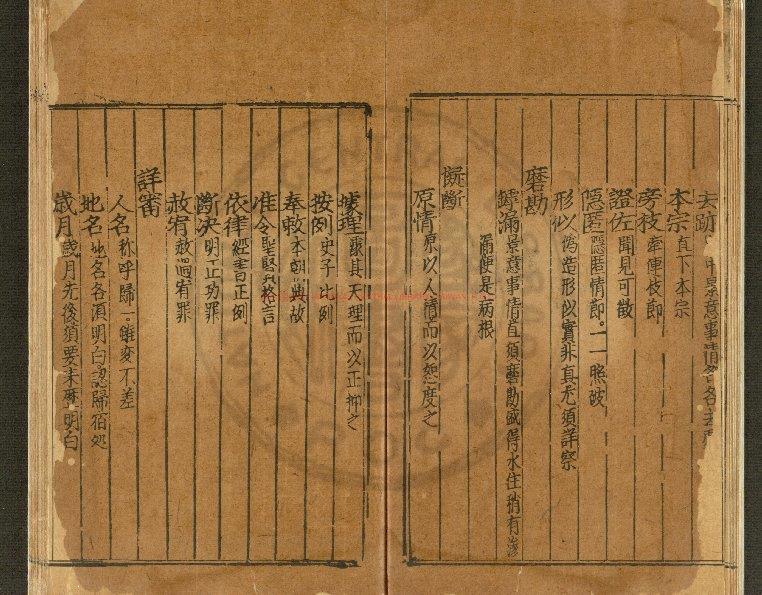 去跡 中景意事情各各去
本宗 直下本宗
旁枝 牽連枝節
證佐 聞見可徵
隱匿 隱匿情節一一照破
形似 偽造形似實非真尤須詳察
磨勘
罅漏 景意事情直須磨勘盛得水住稍有滲
漏便是病根
擬斷
原情 原以人情而以恕度之
據理 據其天理而以正抑之
按例 史子比例
奉敕 本朝典故
准令 聖賢格言
依律 經書正例
斷決 明正功罪
赦宥 赦過宥罪
詳審
人名 稱呼歸一雖变不差
地名 地名各須明白認歸宿処
歲月 歲月先後須要未歷明白